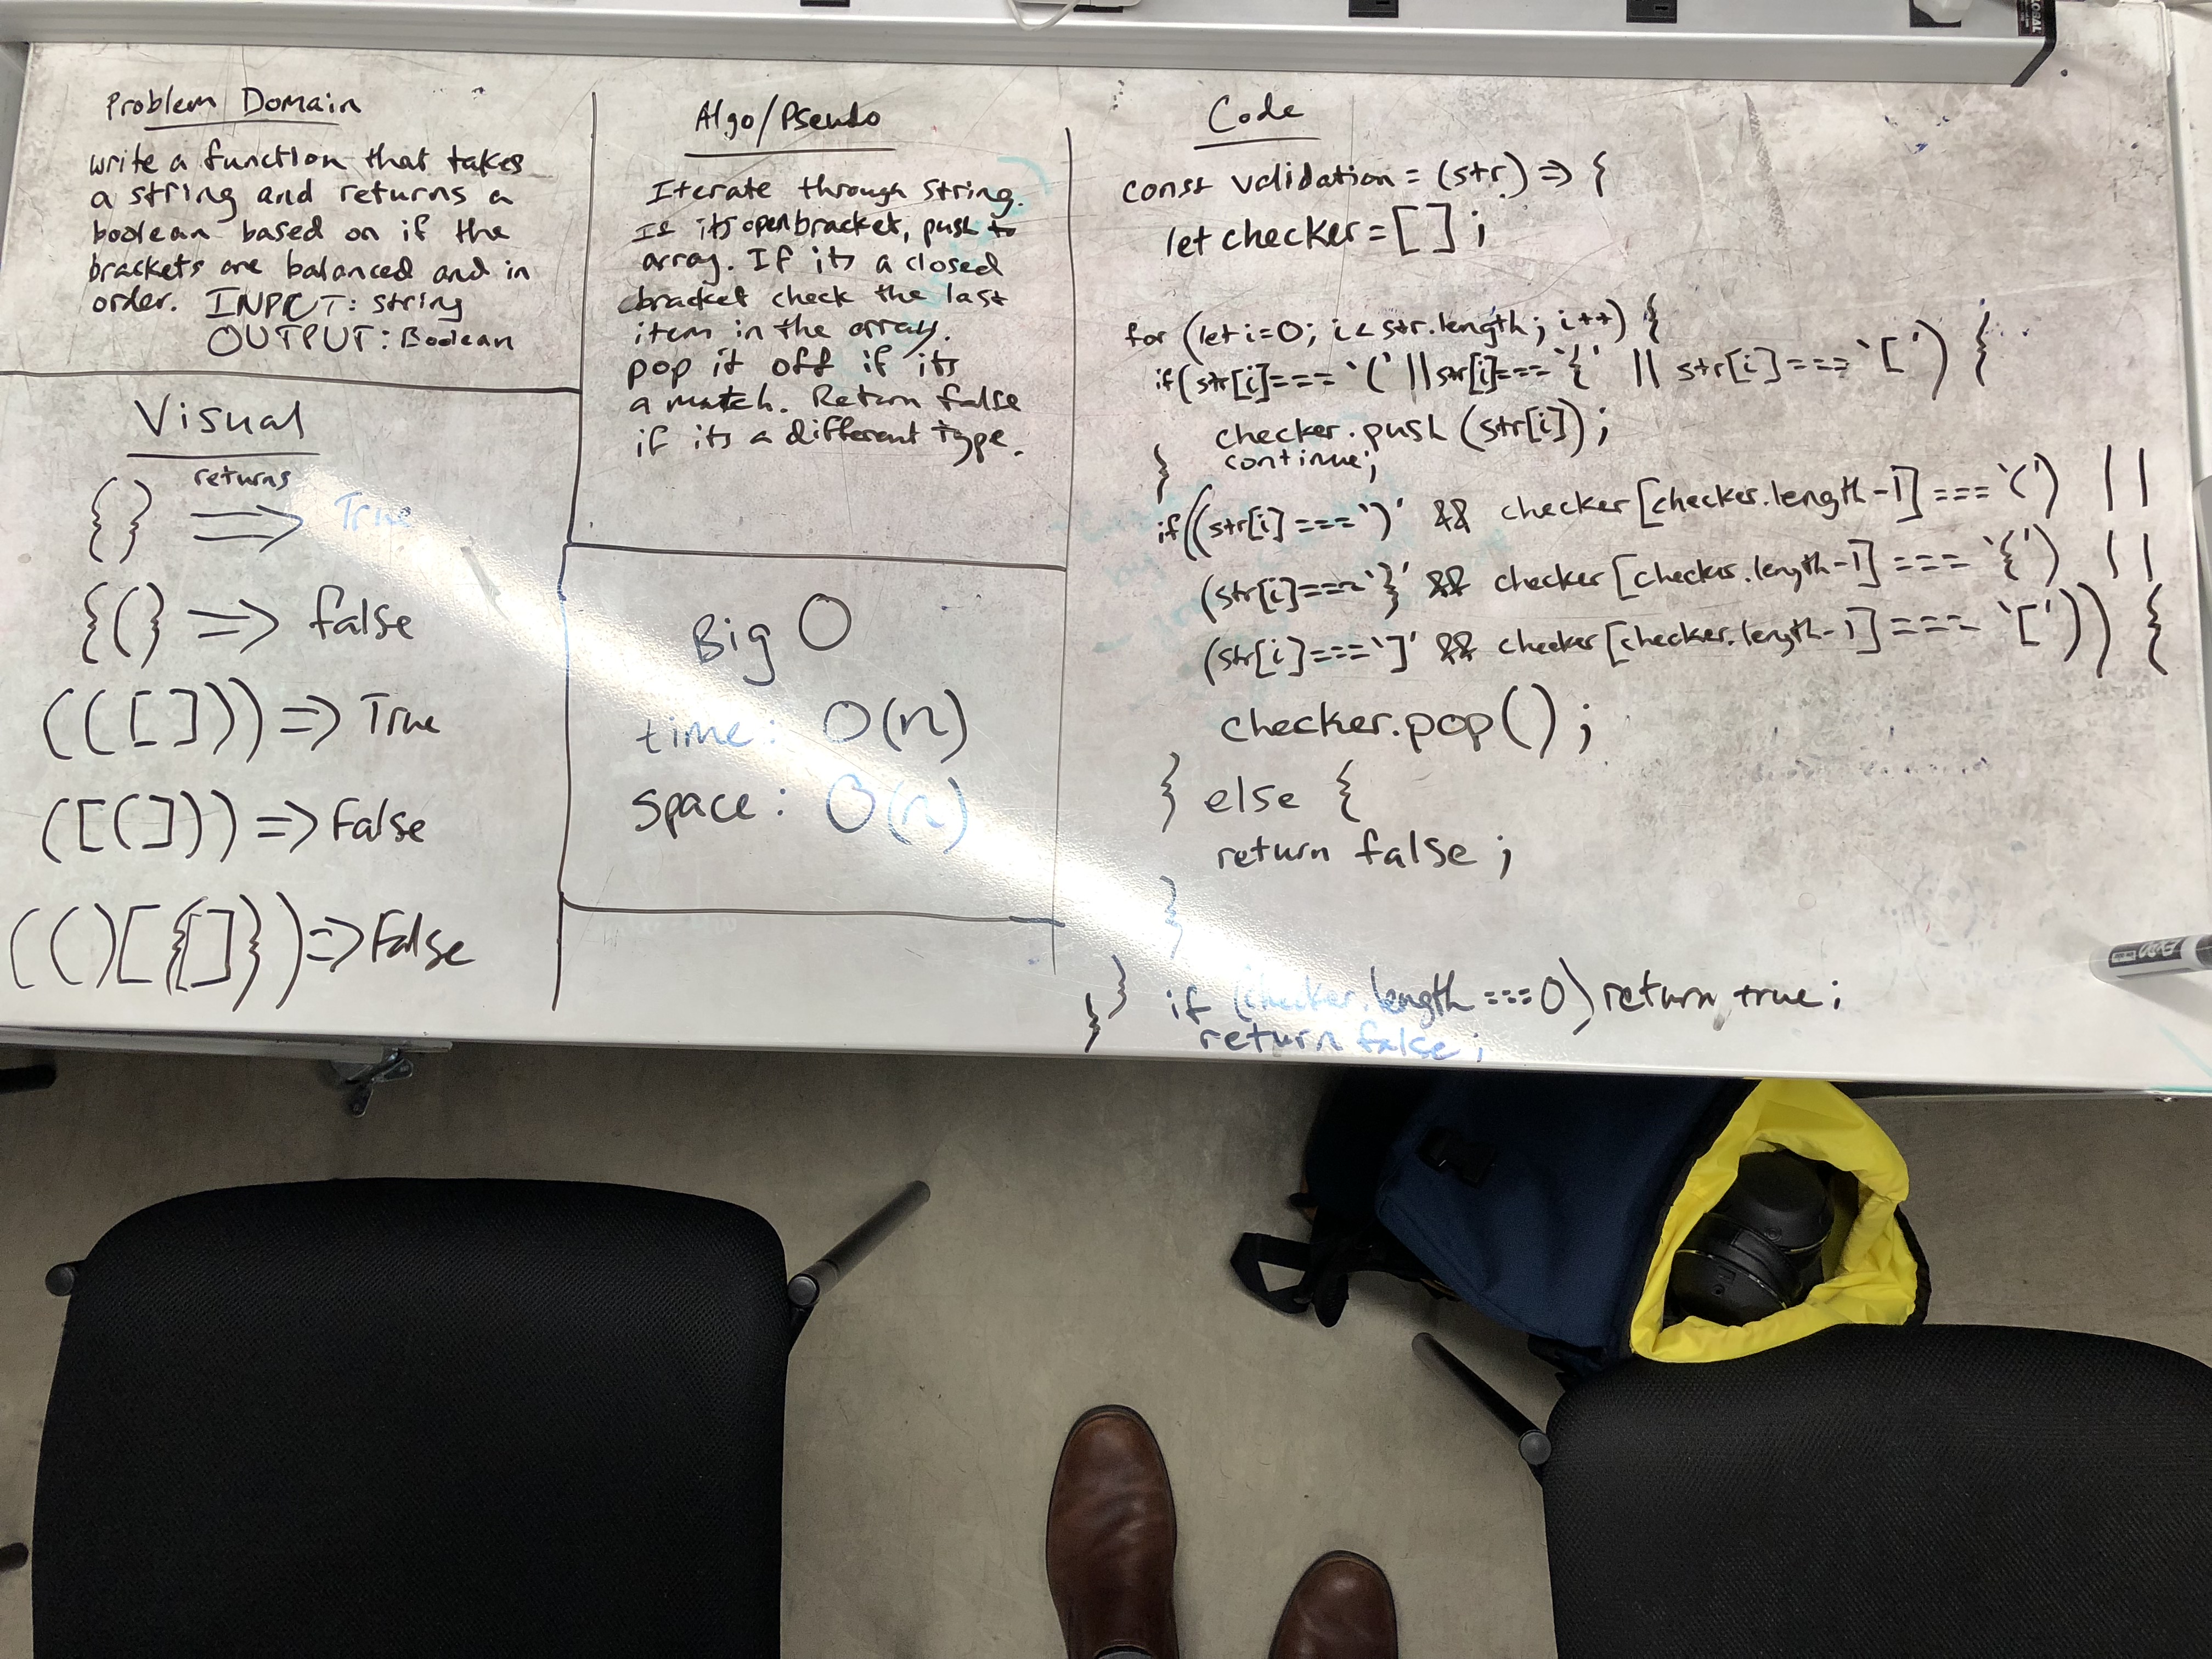 Problem Domain
write a function that takes
a string and returns a
boolean based on if the
brackets are balanced and in
order. INPUT: string
OUTPUT: Boolean
Visual
returns
{} => True
{(} => false
(([])) => True
([(])) => False
(()[{[]}) => False
Algo/Pseudo
Iterate through string.
If its open bracket, push to
array. If its a closed
bracket check the last
item in the array.
pop it off if its
a match. Return false
if its a different type.
Big O
time: O(n)
space: O(n)
Code
const validation = (str) => {
let checker = [];
for (let i=0; i < str.length; i++) {
if(str[i]=== '(' || str[i]=== '{' || str[i]=== '[') {
checker.push(str[i]);
continue;
}
if((str[i]===')' && checker[checker.length-1] === '(') ||
(str[i]==='}' && checker[checker.length-1] === '{') ||
(str[i]===']' && checker[checker.length-1] === '[')) {
checker.pop();
} else {
return false;
}
} if (checker.length ===0) return true;
} return false;
GLOBAL
EXPO